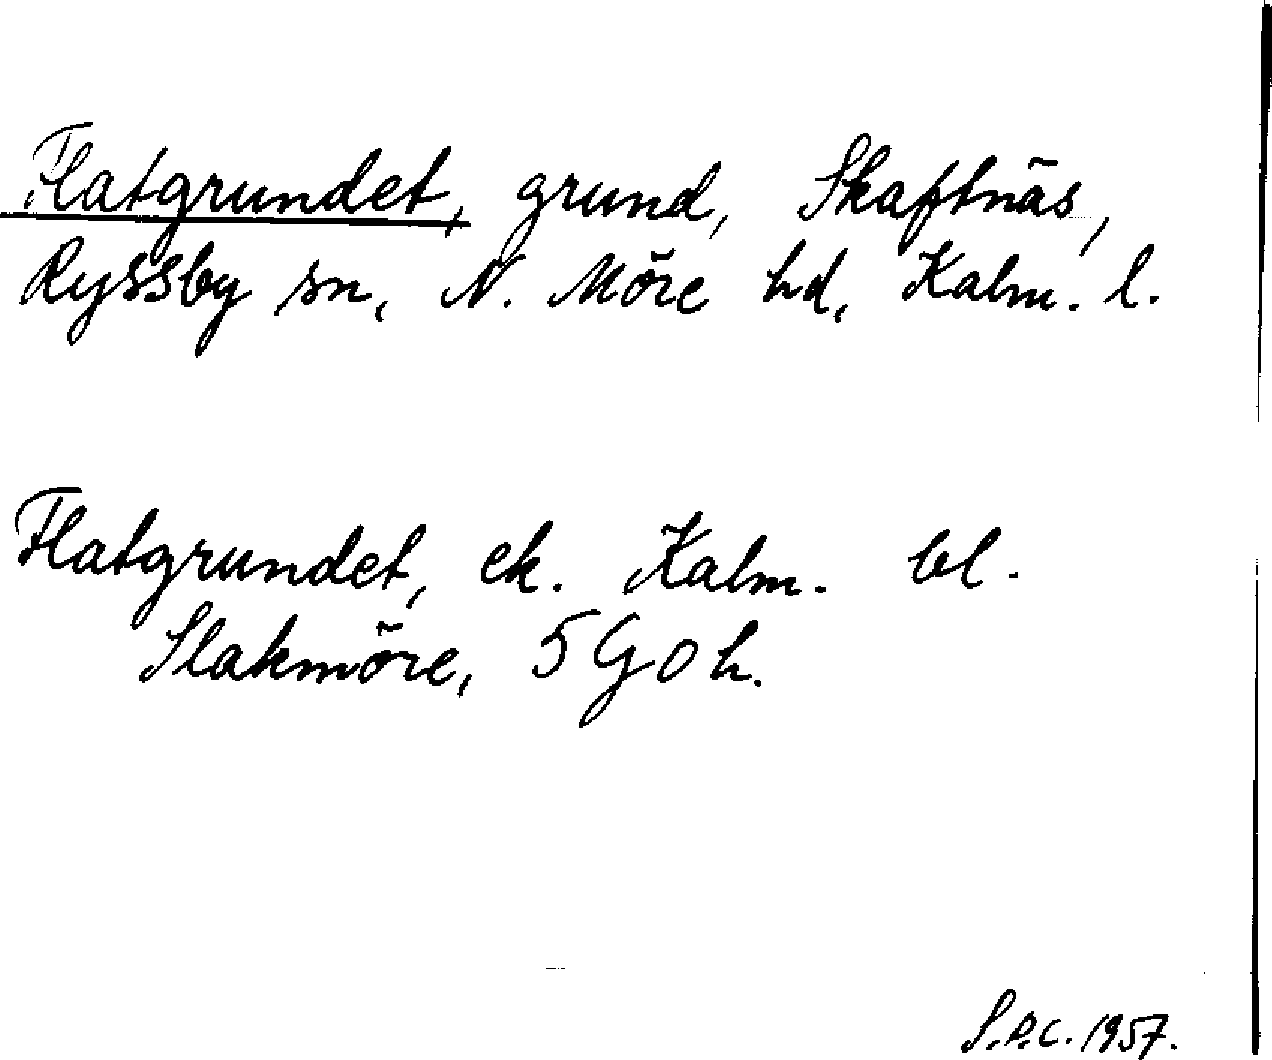 Flatgrundet, grund, Skaftnäs,
Ryssby sn, N. Möre hd, Kalm. l.
Flatgrundet, ek. Kalm. bl.
Slakmöre, 5 G O h.
S.P.C. 1957.